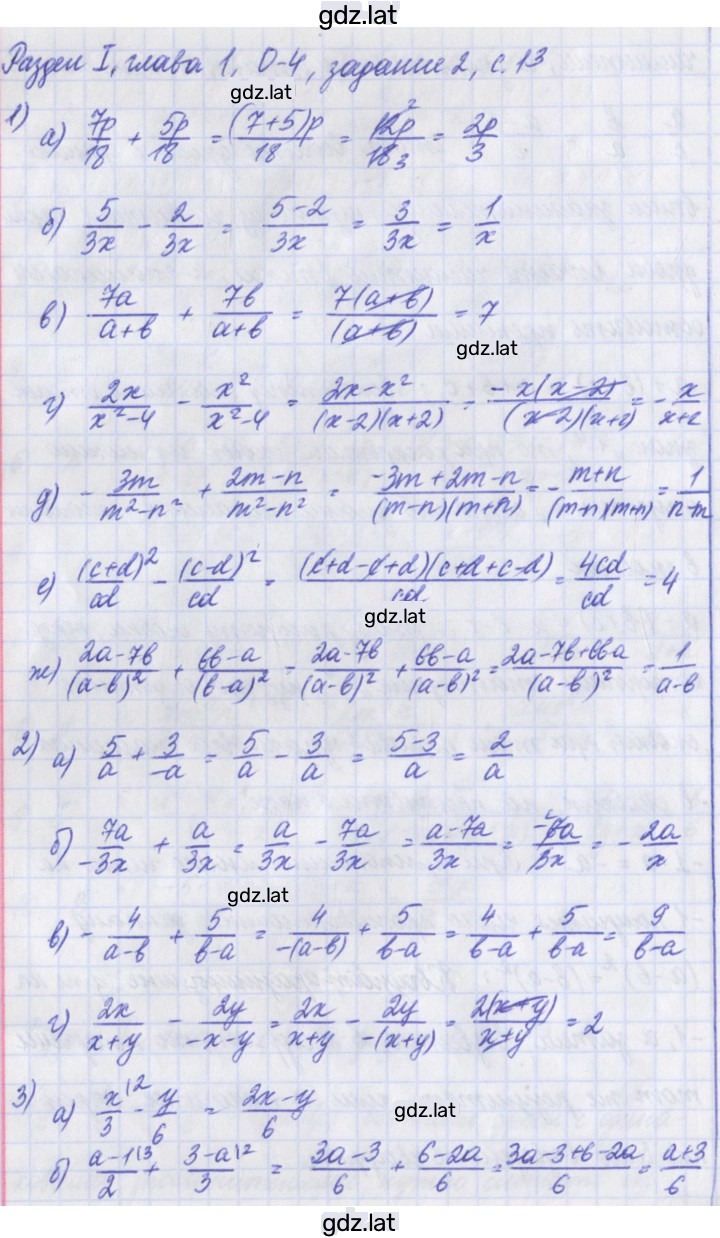 gdz.lat
Раздел I, глава 1, О-4, задание 2, с. 13
gdz.lat
1) а) 7p/18 + 5p/18 = (7+5)p/18 = 12p²/18₃ = 2p/3
б) 5/3x - 2/3x = 5-2/3x = 3/3x = 1/x
в) 7a/a+в + 7в/a+в = 7(a+в)/(a+в) = 7
gdz.lat
г) 2x/x²-4 - x²/x²-4 = 2x-x²/(x-2)(x+2) = -x(x-2)/(x-2)(x+2) = -x/x+2
д) - 3m/m²-n² + 2m-n/m²-n² = -3m+2m-n/(m-n)(m+n) = - m+n/(m-n)(m+n) = 1/n-m
е) (c+d)²/cd - (c-d)²/cd = (c+d-c+d)(c+d+c-d)/cd = 4cd/cd = 4
gdz.lat
ж) 2a-7в/(a-в)² + 6в-a/(в-a)² = 2a-7в/(a-в)² + 6в-a/(a-в)² = 2a-7в+6вa/(a-в)² = 1/a-в
2) а) 5/a + 3/-a = 5/a - 3/a = 5-3/a = 2/a
б) 7a/-3x + a/3x = a/3x - 7a/3x = a-7a/3x = -6a/3x = - 2a/x
gdz.lat
в) - 4/a-в + 5/в-a = 4/-(a-в) + 5/в-a = 4/в-a + 5/в-a = 9/в-a
г) 2x/x+y - 2y/-x-y = 2x/x+y - 2y/-(x+y) = 2(x+y)/x+y = 2
3) а) x|2/3 - y/6 = 2x-y/6
gdz.lat
б) a-1|3/2 + 3-a|2/3 = 3a-3/6 + 6-2a/6 = 3a-3+6-2a/6 = a+3/6
gdz.lat